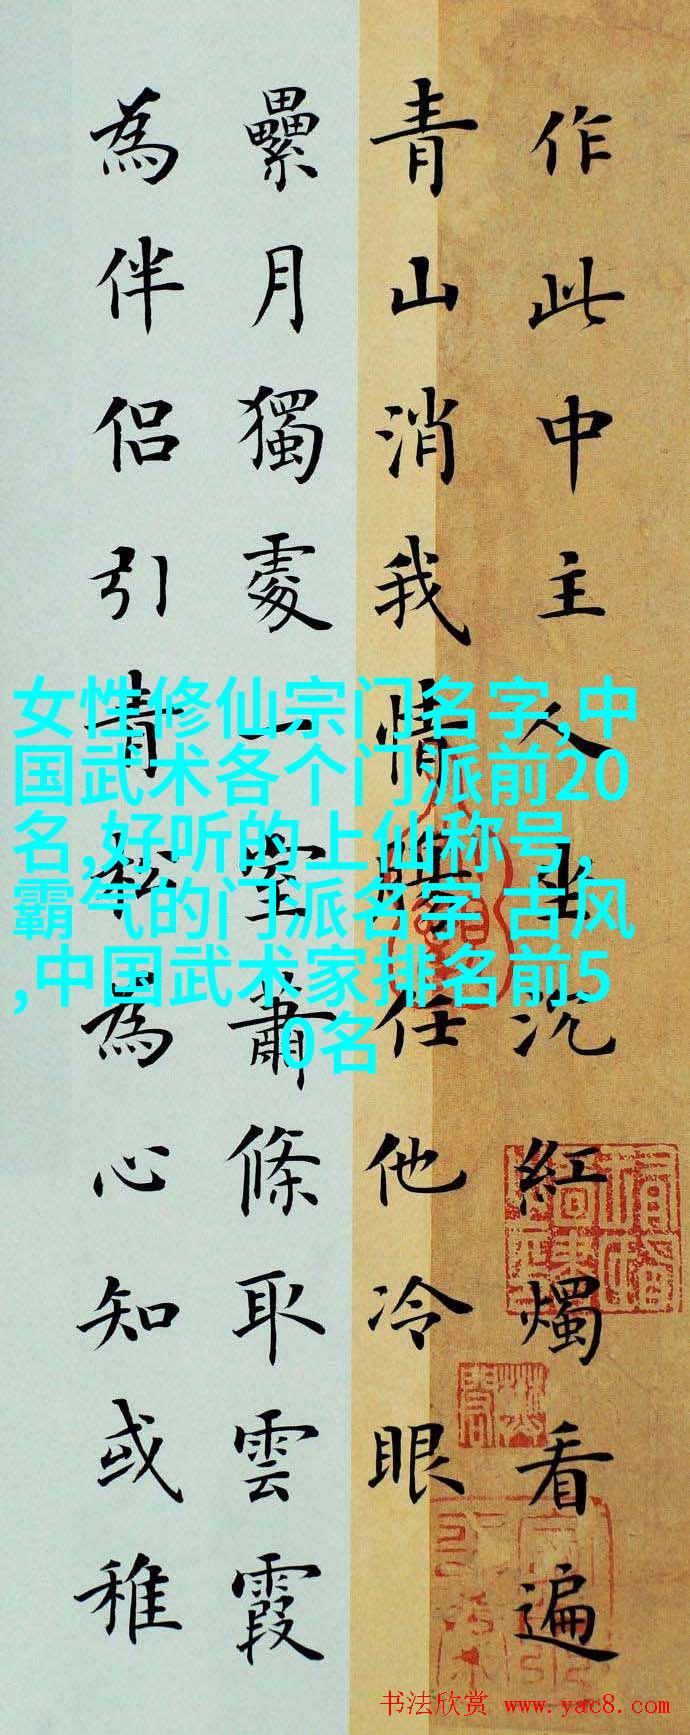 作此中主人坐沉紅燭看遍
青山消我情腸任他冷眼
纍月獨處一室蕭條取雲霞
為伴侶引青松為心知或稚
女性修仙宗门名字,中
国武术各个门派前20
名,好听的上仙称号,
霸气的门派名字 古风
,中国武术家排名前5
0名
书法欣赏 www.yac8.com